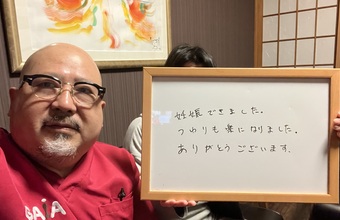 妊娠できました。
つわりも楽になりました。
ありがとうございます。